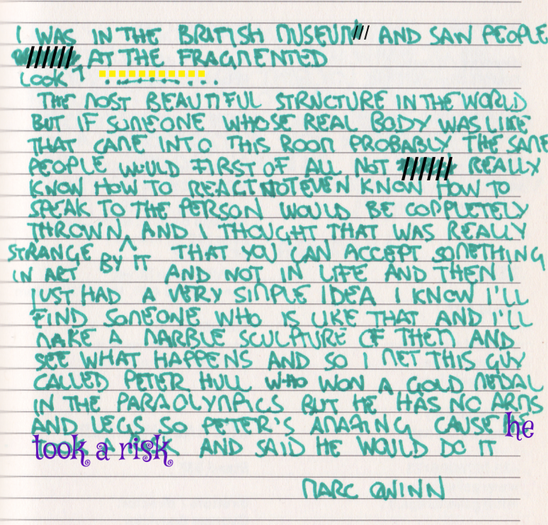 I WAS IN THE BRITISH MUSEUM AND SAW PEOPLE
AT THE FRAGMENTED
LOOK
THE MOST BEAUTIFUL STRUCTURE IN THE WORLD
BUT IF SOMEONE WHOSE REAL BODY WAS LIKE
THAT CAME INTO THIS ROOM PROBABLY THE SAME
PEOPLE WOULD FIRST OF ALL NOT REALLY
KNOW HOW TO REACT NOT EVEN KNOW HOW TO
SPEAK TO THE PERSON WOULD BE COMPLETELY
THROWN AND I THOUGHT THAT WAS REALLY
STRANGE BY IT THAT YOU CAN ACCEPT SOMETHING
IN ART AND NOT IN LIFE AND THEN I
JUST HAD A VERY SIMPLE IDEA I KNOW I'LL
FIND SOMEONE WHO IS LIKE THAT AND I'LL
MAKE A MARBLE SCULPTURE OF THEM AND
SEE WHAT HAPPENS AND SO I MET THIS GUY
CALLED PETER HULL WHO WON A GOLD MEDAL
IN THE PARAOLYMPICS BUT HE HAS NO ARMS
AND LEGS SO PETER'S AMAZING CAUSE he
took a risk AND SAID HE WOULD DO IT
MARC QUINN